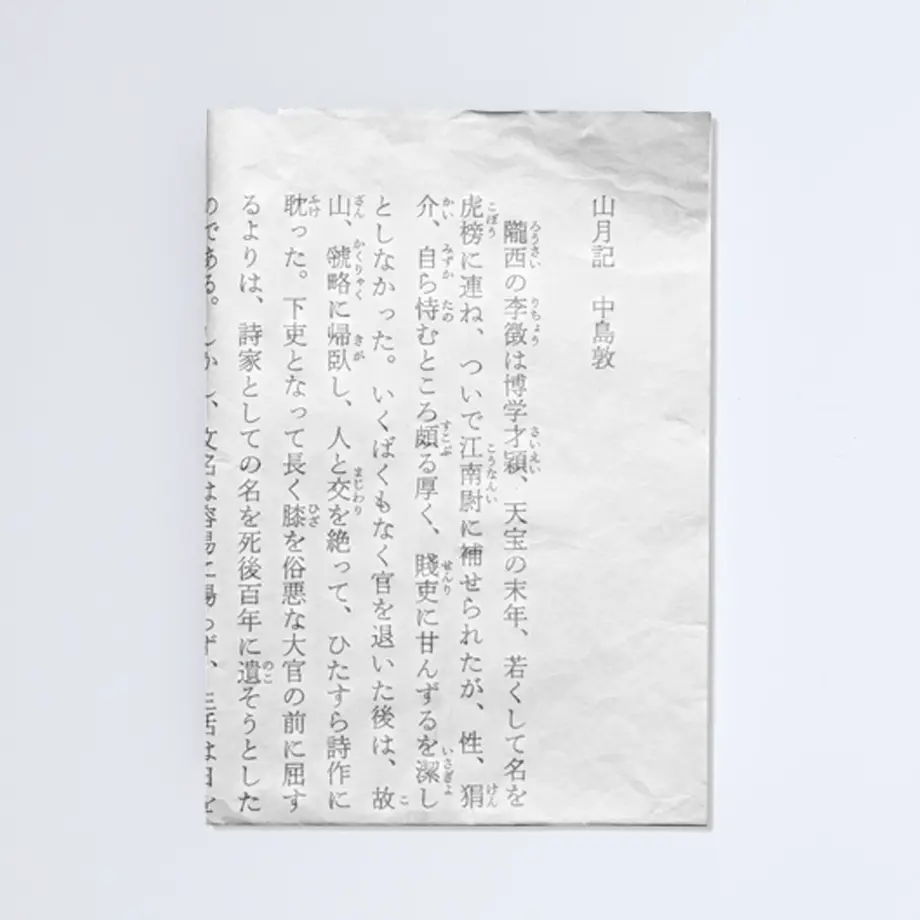 山月記　中島敦
隴西の李徴は博学才穎、天宝の末年、若くして名を
虎榜に連ね、ついで江南尉に補せられたが、性、狷
介、自ら恃むところ頗る厚く、賤吏に甘んずるを潔し
としなかった。いくばくもなく官を退いた後は、故
山、虢略に帰臥し、人と交を絶って、ひたすら詩作に
耽った。下吏となって長く膝を俗悪な大官の前に屈す
るよりは、詩家としての名を死後百年に遺そうとした
のである。しかし、文名は容易に揚らず、生活は日を